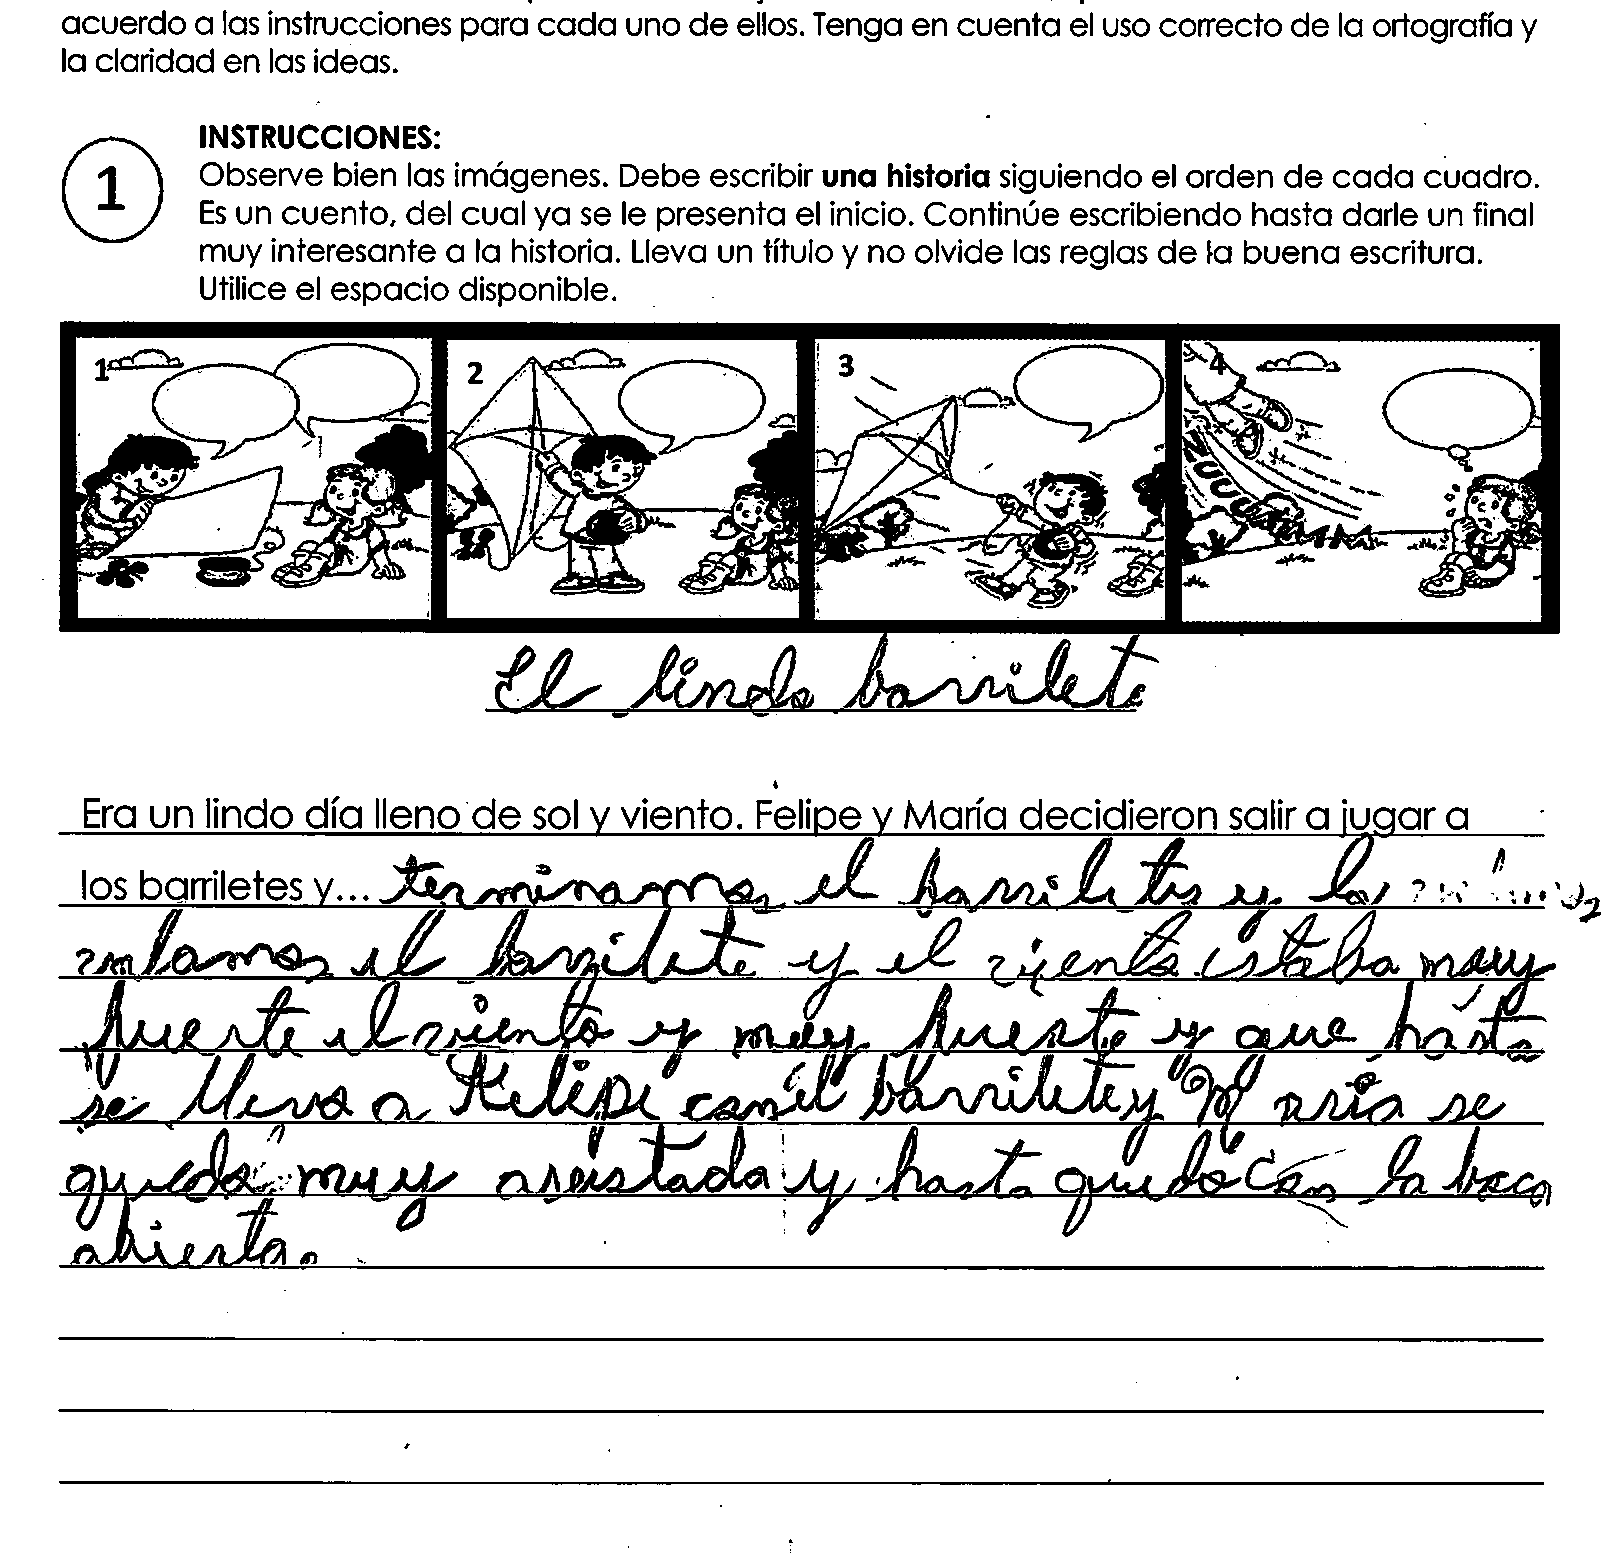 acuerdo a las instrucciones para cada uno de ellos. Tenga en cuenta el uso correcto de la ortografía y
la claridad en las ideas.
1
INSTRUCCIONES:
Observe bien las imágenes. Debe escribir una historia siguiendo el orden de cada cuadro.
Es un cuento, del cual ya se le presenta el inicio. Continúe escribiendo hasta darle un final
muy interesante a la historia. Lleva un título y no olvide las reglas de la buena escritura.
Utilice el espacio disponible.
1 2 3 4
El lindo barrilete
Era un lindo día lleno de sol y viento. Felipe y María decidieron salir a jugar a
los barriletes y... terminamos el barriletes y lo
el barrilete y el viento estaba muy
fuerte el viento y muy fuerte y que hasta
se llevo a Felipe con el barrilete y María se
quedó muy asustada y hasta quedó con la boca
abierta.